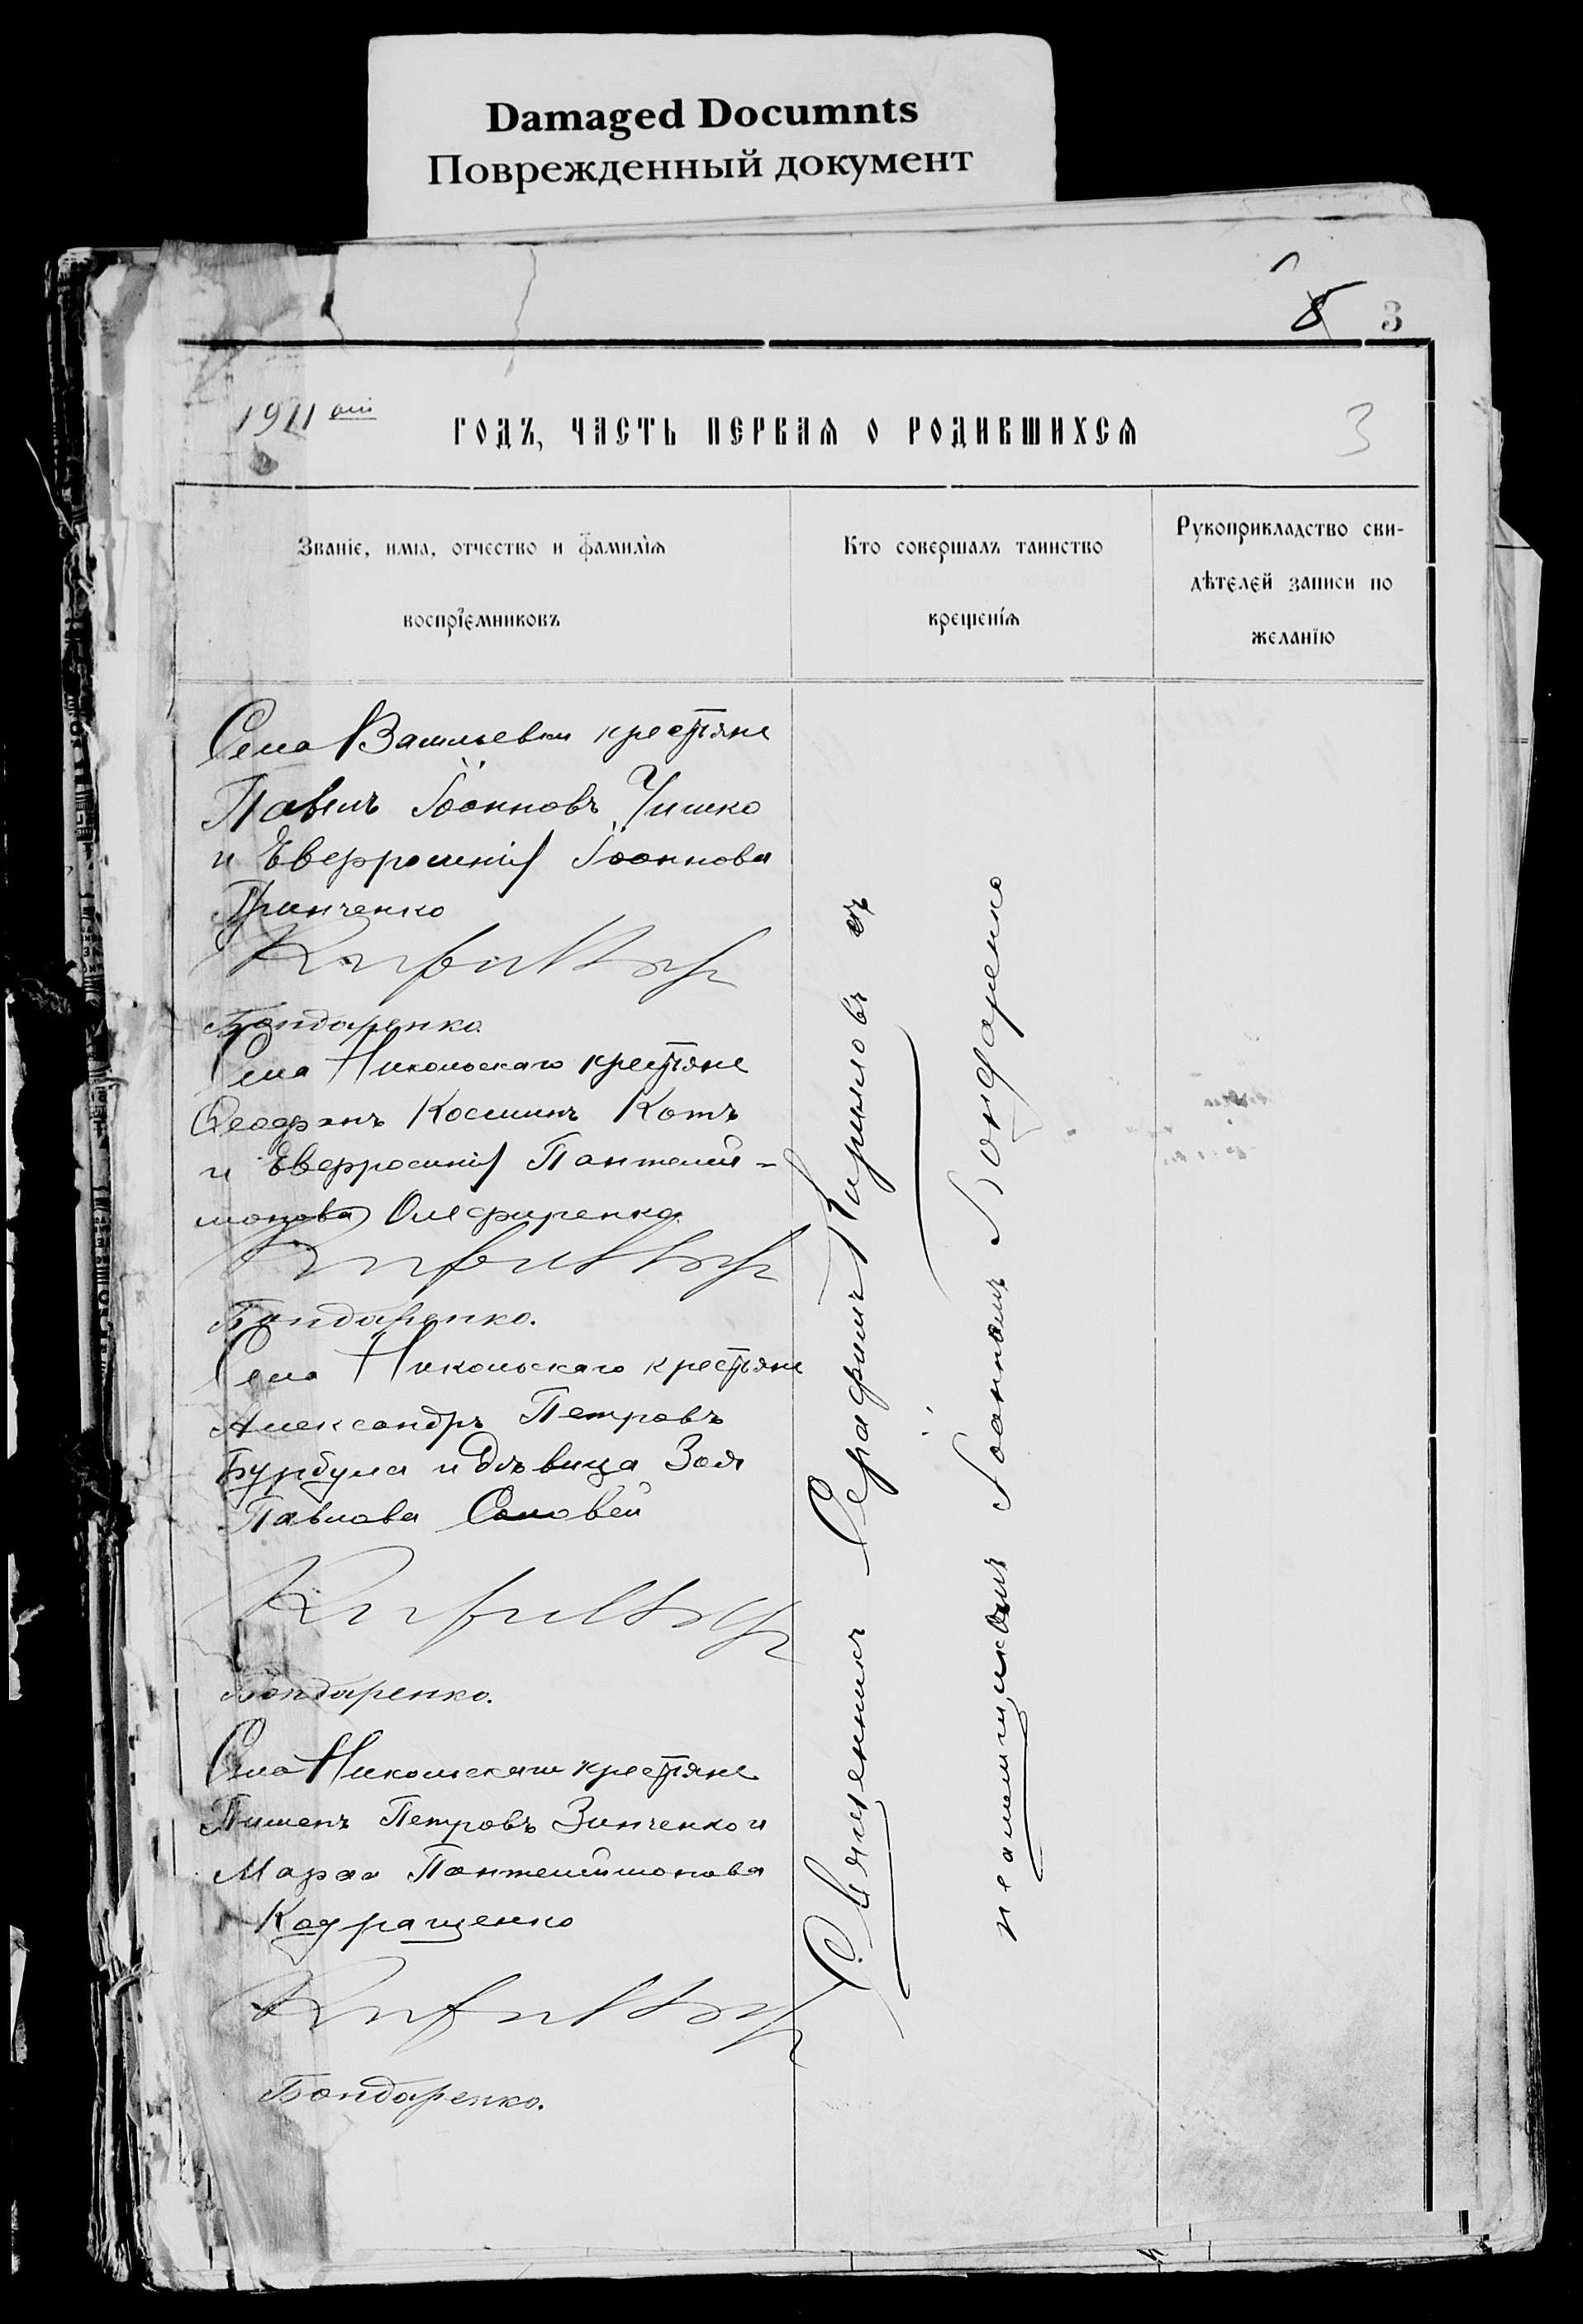 Damaged Documnts
Поврежденный документ
8 3
1911 ый
годъ, часть первая о родившихся
3
Званіе, имя, отчество и фамилія
воспріемниковъ
Кто совершалъ таинство
крещенія
Рукоприкладство сви-
дѣтелей записи по
желанію
Села Васильевки крестьяне
Павелъ Іоанновъ Чишко
и Евфросинія Іоаннова
Гринченко
Бондаренко.
Села Никольскаго крестьяне
Ѳеофанъ Косминъ Котъ
и Евфросинія Пантелий-
монова Олефиренко
Бондаренко.
Села Никольскаго крестьяне
Александръ Петровъ
Бурбула и дѣвица Зоя
Павлова Соловей
Бондаренко.
Села Никольскаго крестьяне
Пименъ Петровъ Зинченко и
Марѳа Пантелиймонова
Кодращенко
Бондаренко.
Священникъ Серафимъ Кириловъ съ
псаломщикомъ Іоанномъ Бондаренко